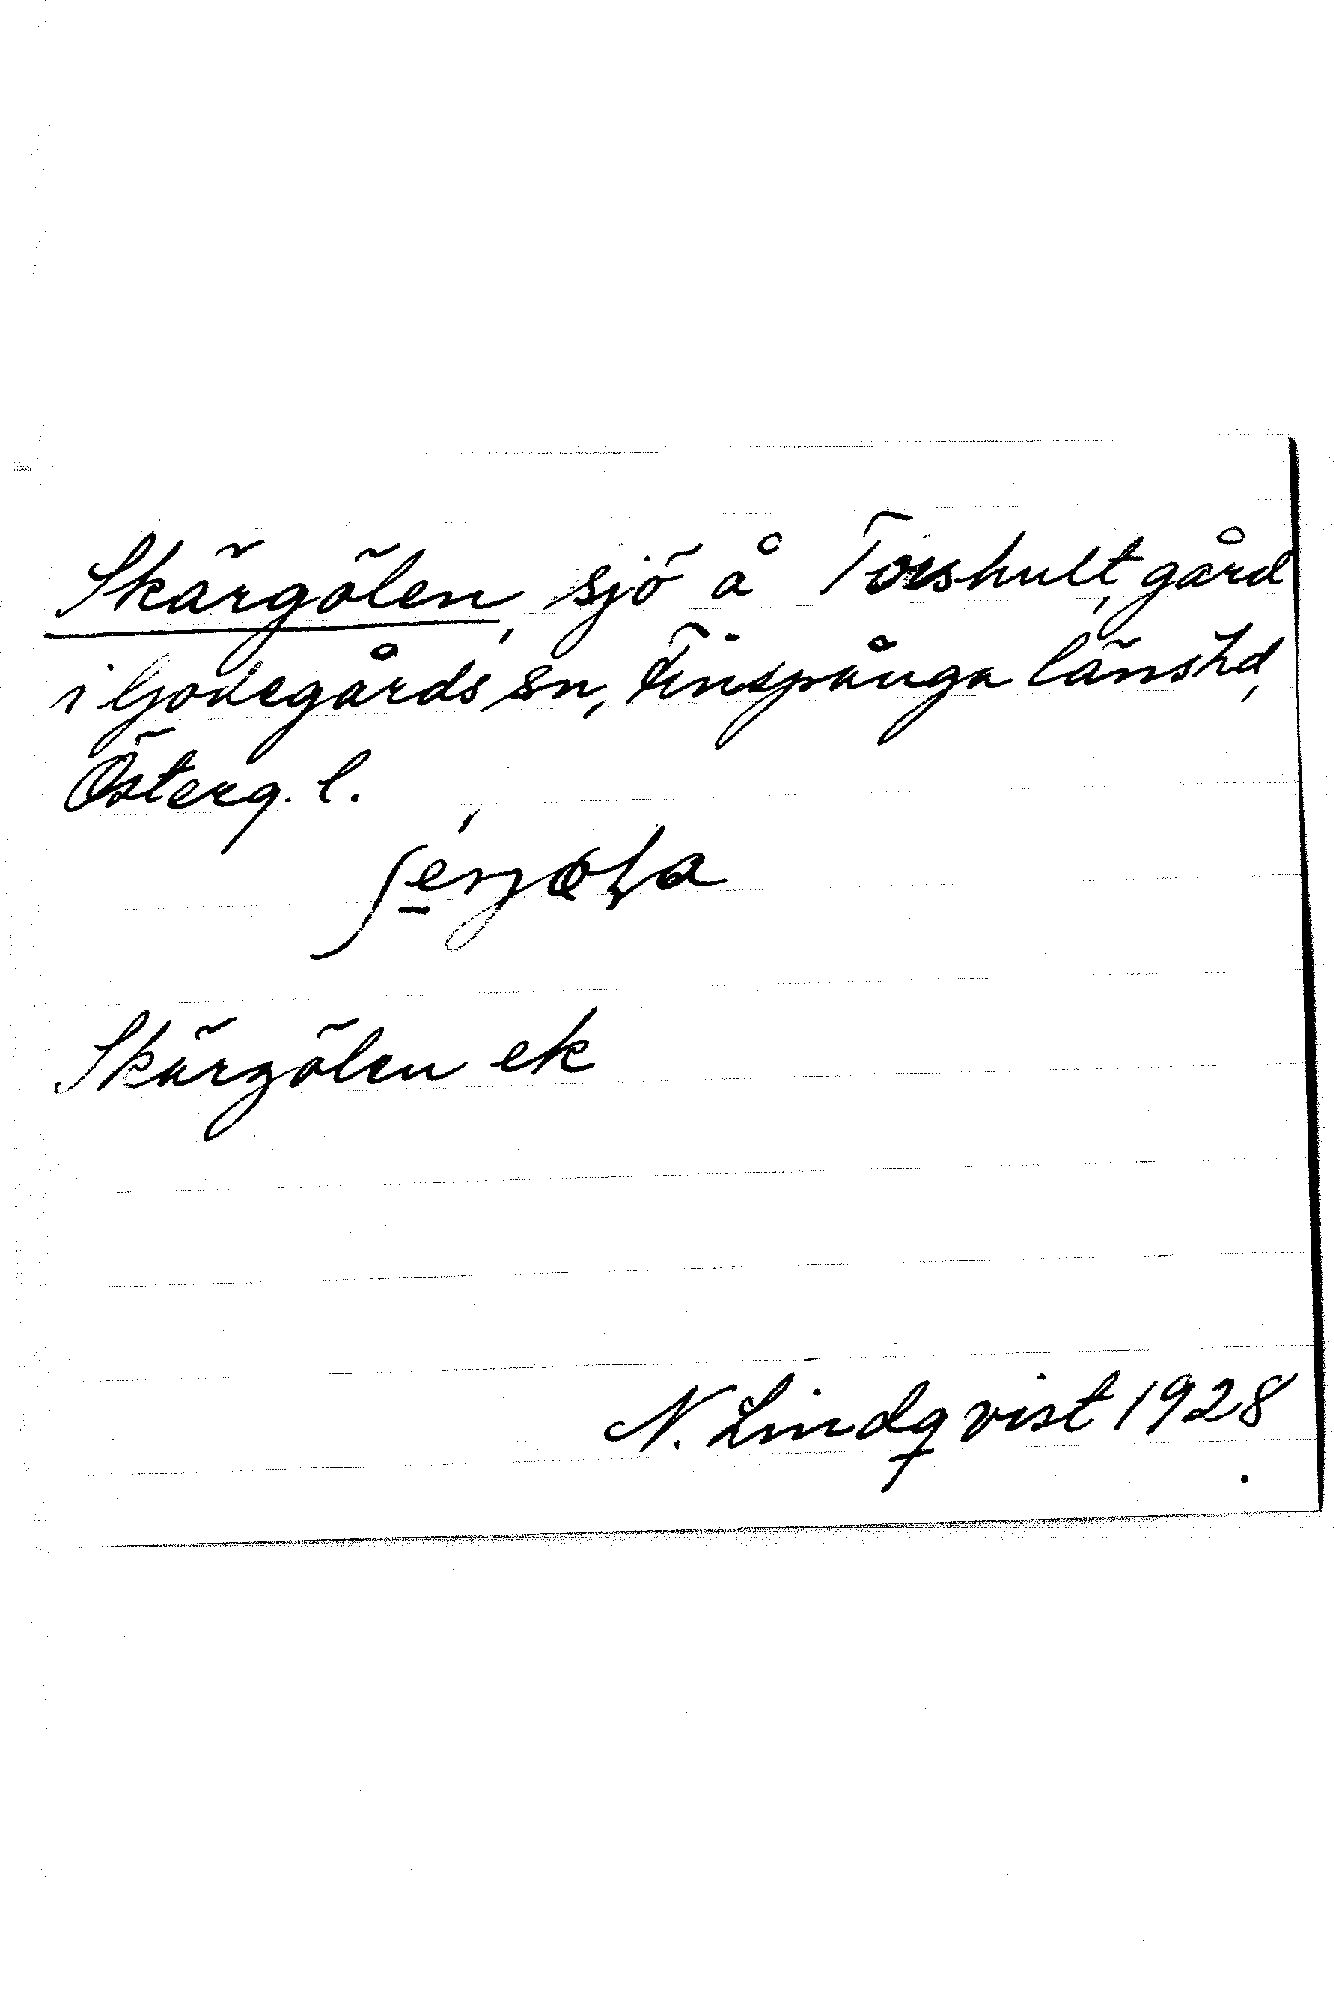 Skärgölen, sjö å Torshult, gård
i Godegårds sn, Finspånga läns hd,
Österg. l.
Skärgölen ek
N. Lindqvist 1928